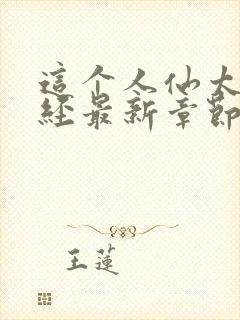 這个人仙太
經最新章節
王蓮